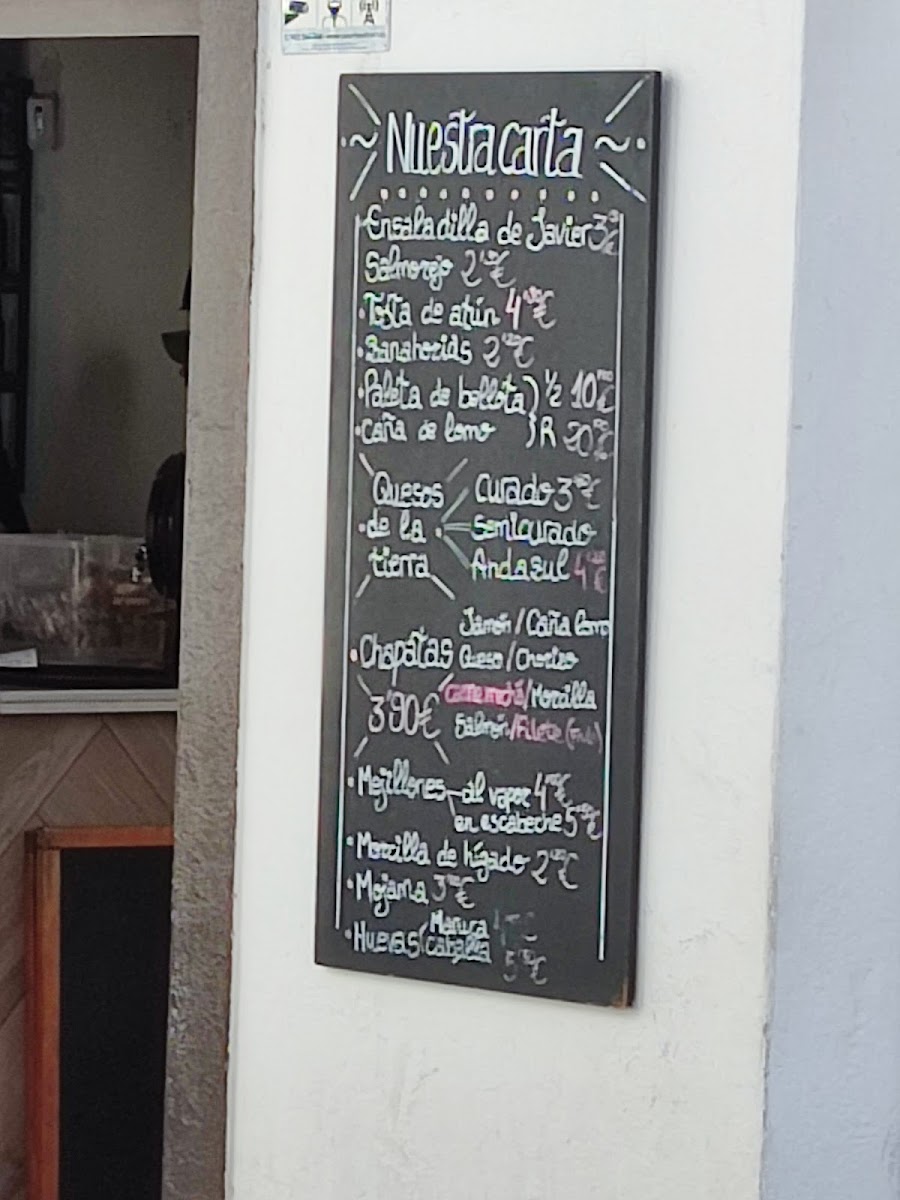 Nuestra carta
Ensaladilla de Javier 3
Salmorejo 2 €
Tosta de atún 4 €
Zanahorias 2 €
Paleta de bellota ) 1/2 10 €
Caña de lomo ) R 20
Quesos
de la
tierra
Curado 3 €
Semicurado
Andazul 4 €
Chapatas
3'90€
Jamón / Caña lomo
Queso / Chorizo
/ Morcilla
Salmón / Filete
Mejillones al vapor 4 €
en escabeche 5 €
Morcilla de hígado 2 €
Mojama 3 €
Huevas Maruca
Caballa 5 €